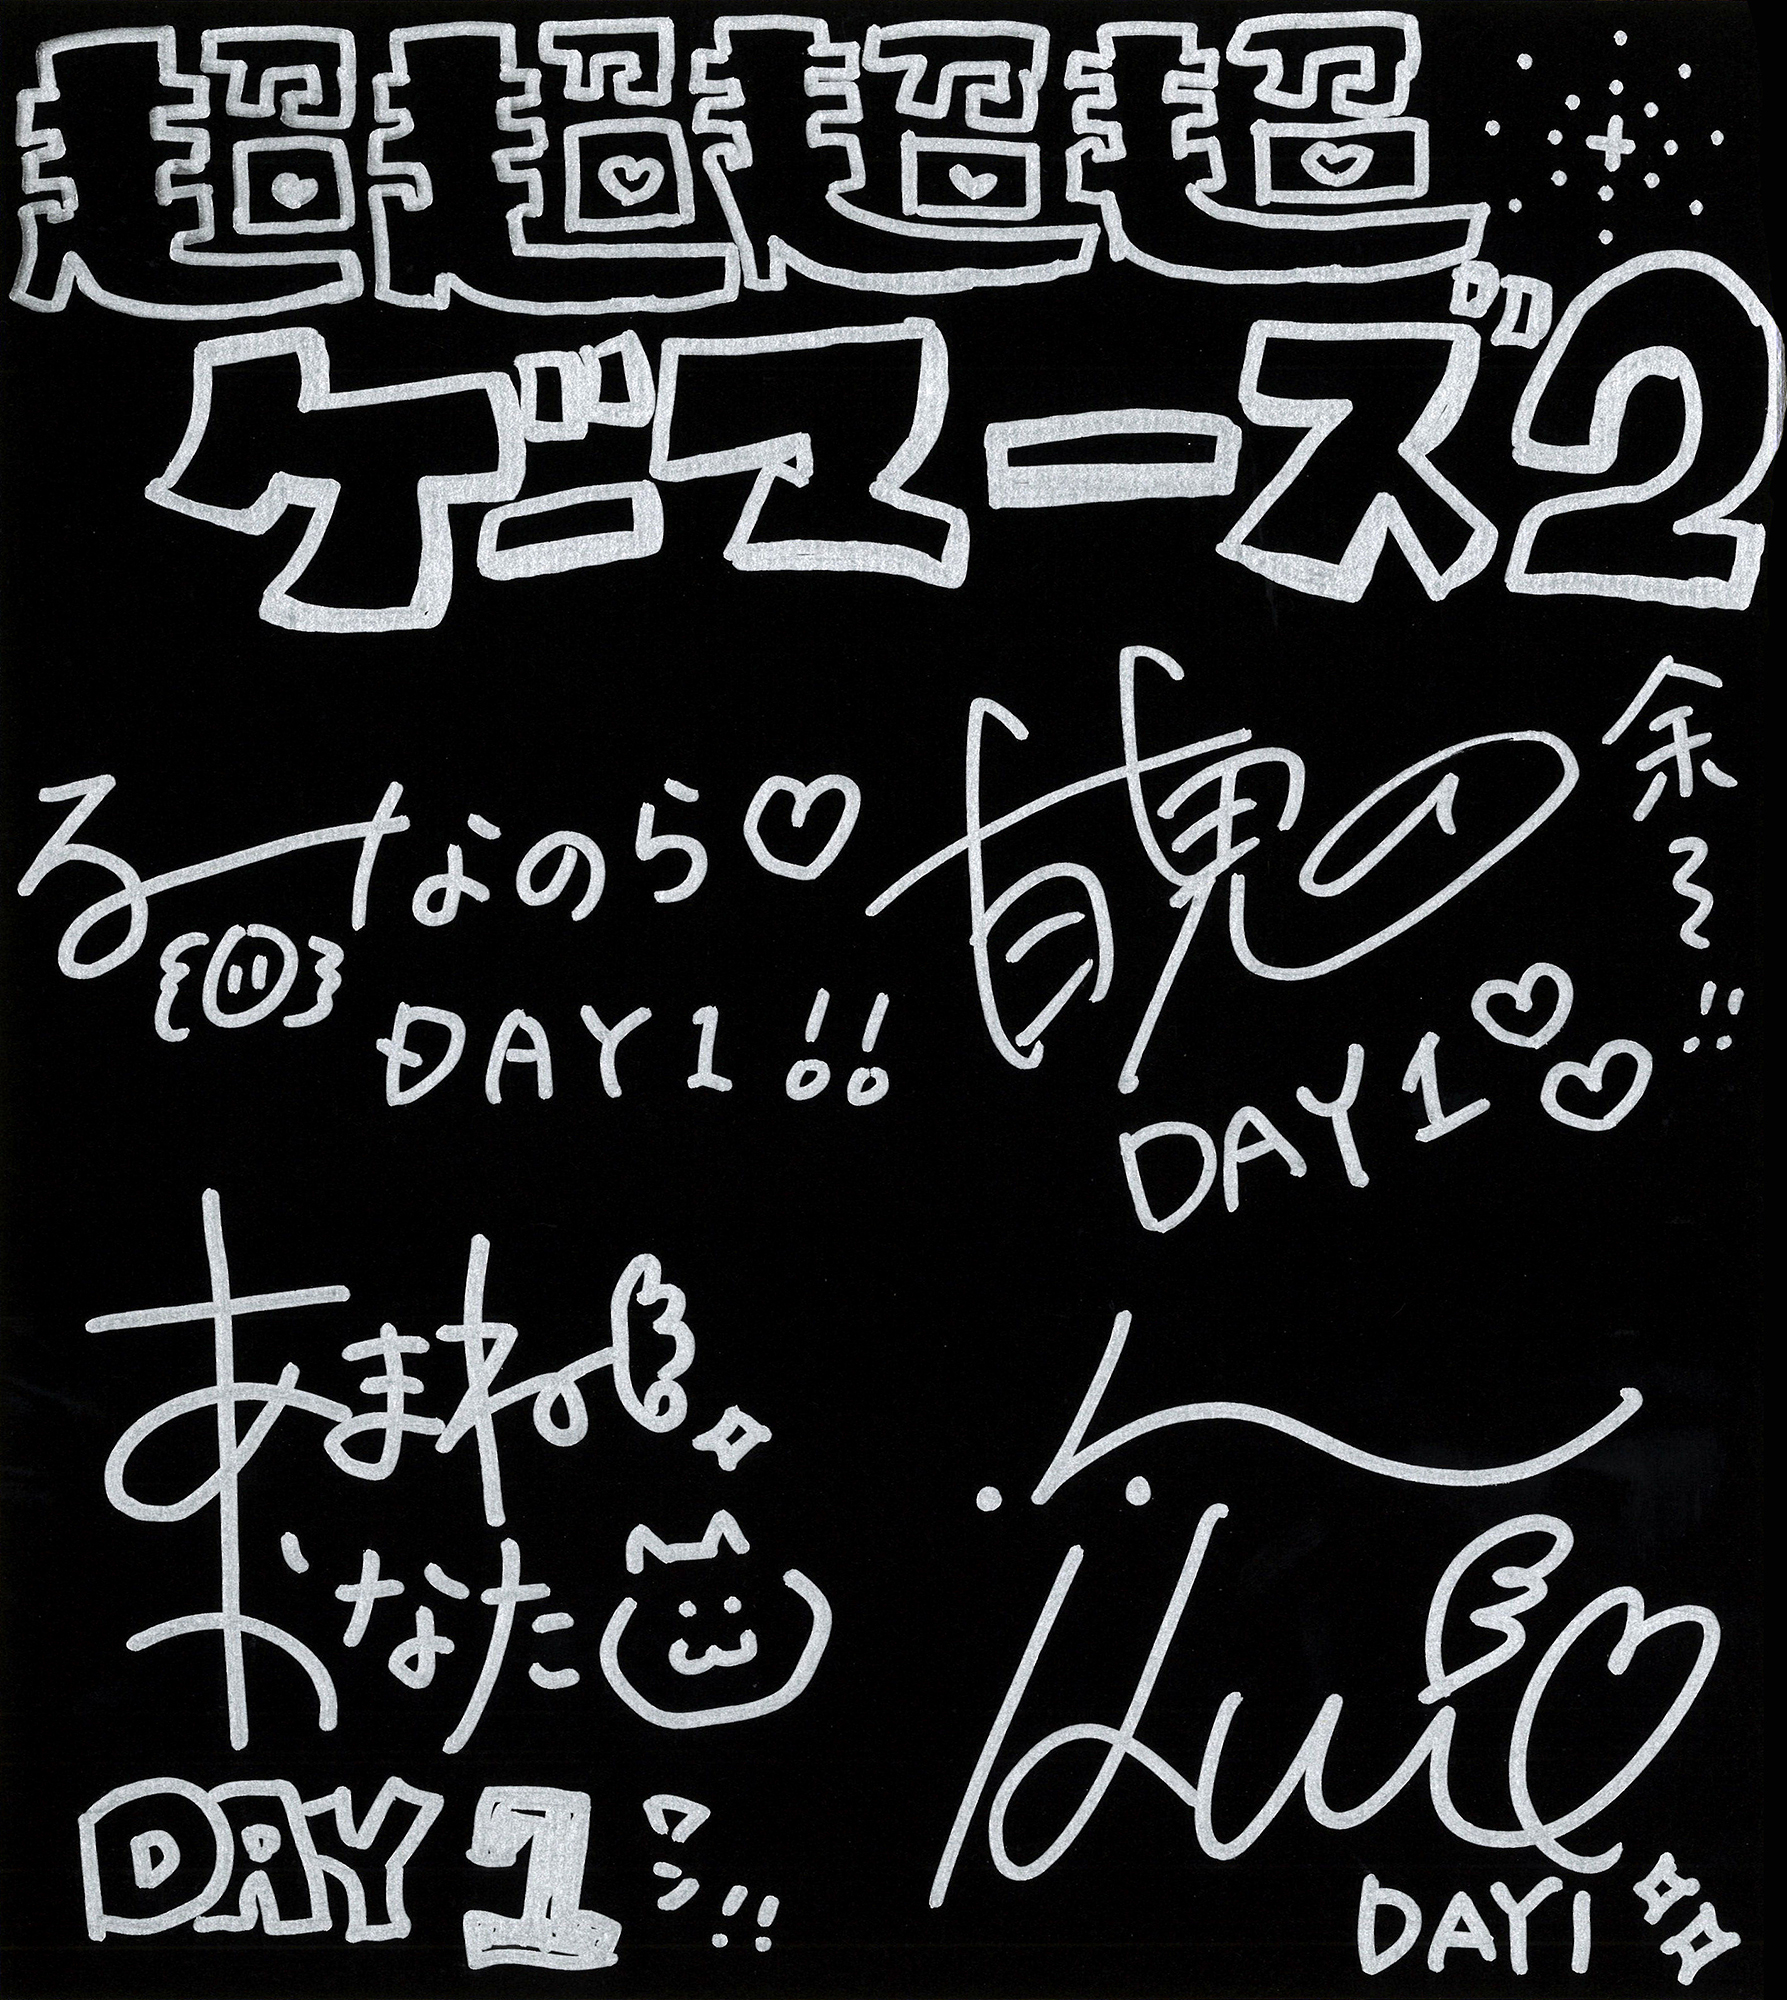 超超超超
ゲーマーズ2
るーなのら♡
DAY1!!
百鬼
余〜!!
DAY1♡♡
あまね
かなた
DAY1ワン!!
DAY1